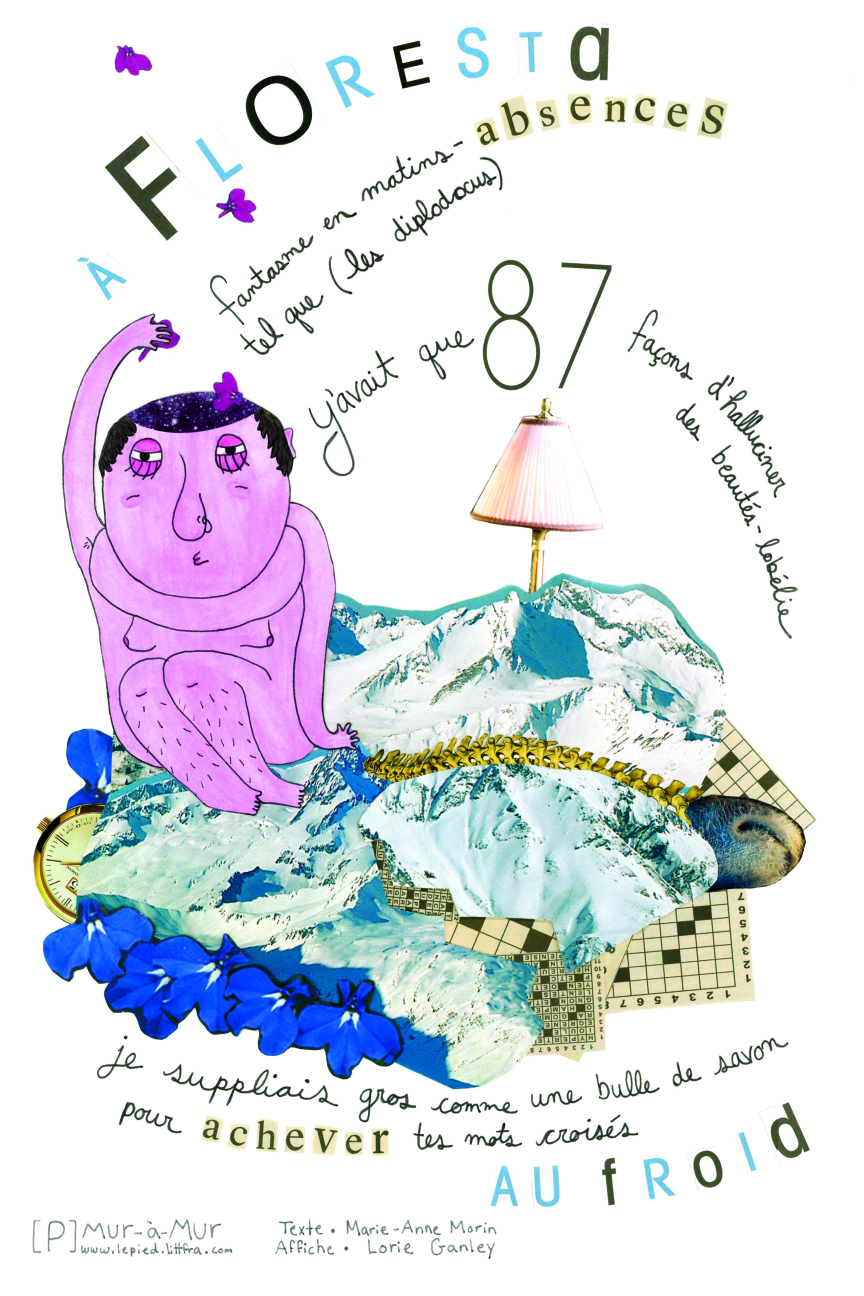 À FLORESTa
fantasme en matins-absences
tel que (les diplodocus)
y'avait que 87 façons d'halluciner
des beautés-lobélie
je suppliais gros comme une bulle de savon
pour achever tes mots croisés
AU fROId
[P] MUR-à-MUR
www.lepied.littfra.com
Texte • Marie-Anne Morin
Affiche • Lorie Ganley